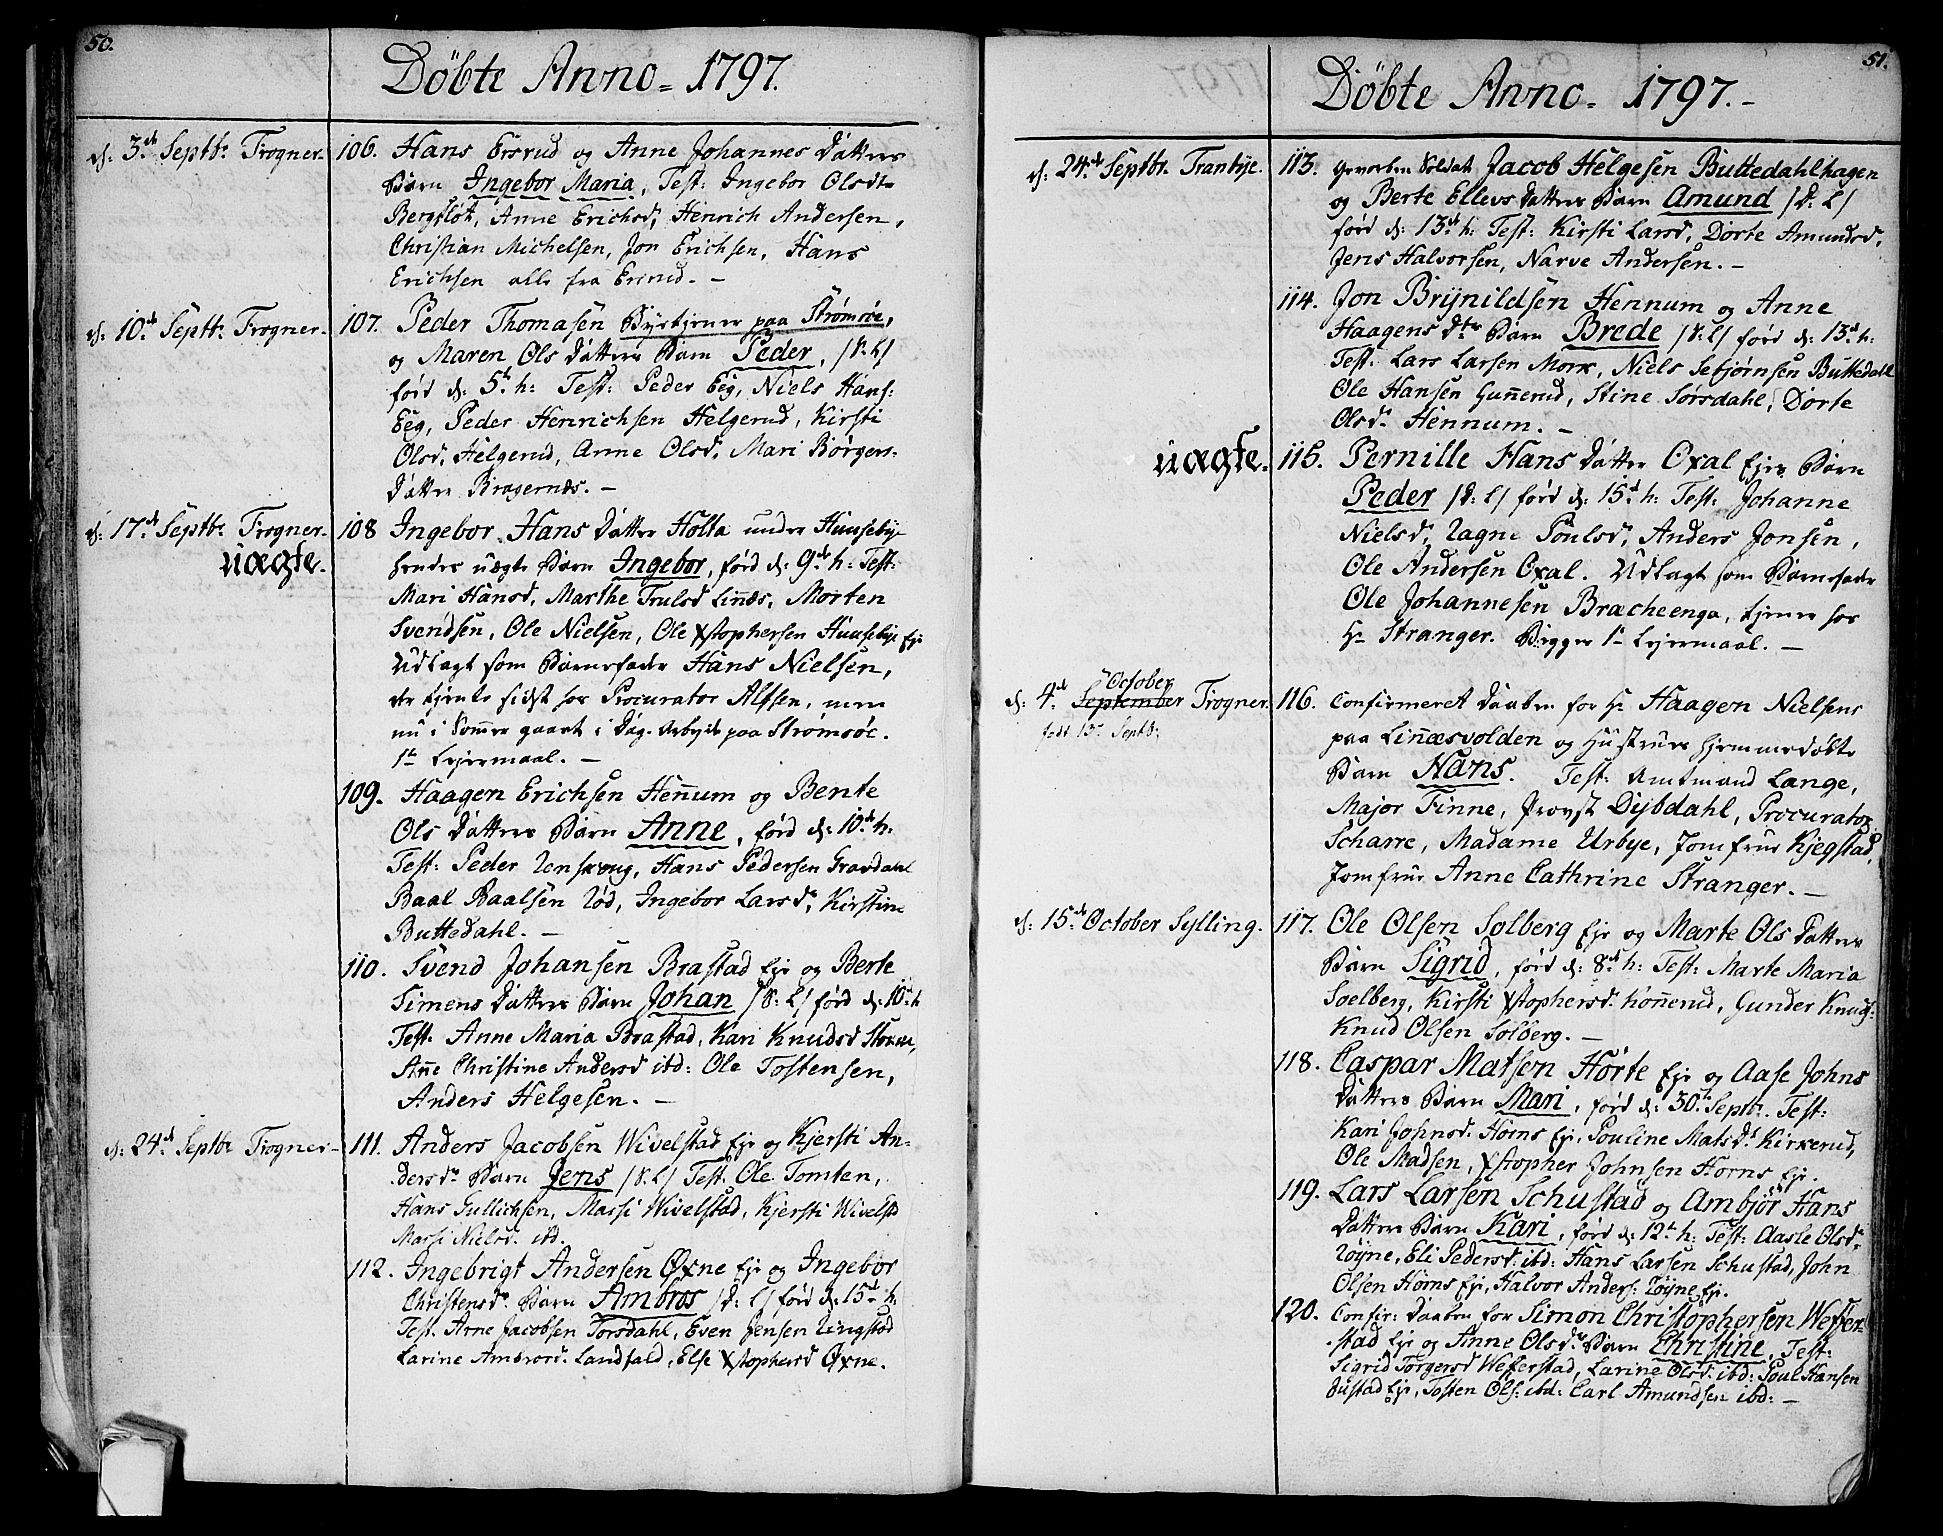 50.
Döbte Anno = 1797.
d: 3de Septbr Frogner. 106. Hans Ersrud og Anne Johannes Datters
Barn Ingebor Maria, Test: Ingebor Olsdr
Bergsløt, Anne Erichsd, Henrich Andersen,
Christian Michelsen, Jon Erichsen, Hans
Erichsen alle fra Ersrud. -
d: 10de Septbr Frogner. 107. Peder Thomasen Byetjener paa Strømsöe,
og Maren Ols Datters Barn Peder, /S: L/
förd d: 5t h: Test: Peder Eeg, Niels Hans:
Eeg, Peder Henrichsen Helgerud, Kirsti
Olsd. Helgerud, Anne Olsd, Mari Börgers
Datter Bragernæs. -
d: 17de Septbr Frogner. 108 Ingebor Hans Datter Holta under Huusebye
uægte.
hendes uægte Barn Ingebor, förd d: 9de h: Test:
Mari Hansd, Marthe Trulsd Linnæs, Morten
Svendsen, Ole Nielsen, Ole Xstophersen Huusebye Eje
Udlagt som Barnefader Hans Nielsen,
der tjente sidst hos Procurator Alfsen, men
nu i Sommer gaaet i Dag-Arbejde paa Strømsöe.
1te Lejermaal. -
109. Haagen Erichsen Hennum og Bente
Ols Datters Barn Anne, förd d: 10de h:
Test: Peder Lenskoug, Hans Pedersen Gravdahl
Baal Baalsen Röd, Ingebor Larsdr, Kirstine
Buttedahl. -
110. Svend Johansen Brastad Eje og Berte
Simens Datters Barn Johan /S: L/ förd d: 10de h
Test: Anne Maria Brastad, Kari Knudsd Storm,
Anne Christine Andersd ibd: Ole Tostensen,
Anders Helgesen. -
d: 24de Septbr Frogner - 111. Anders Jacobsen Wivelstad Eje og Kjersti An-
dersdr Barn Jens /S: L/ Test: Ole Tomten,
Hans Gullichsen, Massi Wivelstad, Kjersti Wivelstd
Massi Nielsd. ibd.
112. Ingebrigt Andersen Øxne Eje og Ingebor
Christensdr Barn Ambros /D: L/ förd d: 15de h:
Test: Arne Jacobsen Torsdahl, Even Jensen Ringstad
Larine Ambrosd. Landfald, Else Xstophersd Øxne.
51.
Döbte Anno = 1797. -
d: 24de Septbr Tranbye. 113. Gevorben Soldat Jacob Helgesen Buttedahlhagen
og Berte Ellevs Datters Barn Amund /D: L/
förd d: 13de h: Test: Kirsti Larsd, Dorte Amundsd,
Jens Halvorsen, Narve Andersen. -
114. Jon Brynildsen Hennum og Anne
Haagens Dtrs Barn Brede /S: L/ förd d: 13de h:
Test: Lars Larsen Mork, Niels Sebjørnsen Buttedahl
Ole Hansen Gunnerud, Stine Sørsdahl, Dorte
Olsdr Hennum. -
uægte. 115. Pernille Hans Datter Oxal Ejes Barn
Peder /D: L/ förd d: 15de h: Test: Johanne
Nielsd, Ragne Poulsd, Anders Jonsen,
Ole Andersen Oxal. Udlagt som Barnefader
Ole Johannesen Bracheenga, tjener hos
Hr Stranger. Begges 1te Lejermaal. -
October
d: 4de September Frogner. 116. Confirmeret Daaben for Hr Haagen Nielsens
födt 15de Septb:
paa Linnæsvolden og Hustrues hjemmedöbte
Barn Hans. Test: Amtmand Lange,
Major Finne, Provst Dybdahl, Procurator
Scharre, Madame Urbye, Jomfrue Kjegstad,
Jomfrue Anne Cathrine Stranger. -
d: 15de October Sylling. 117. Ole Olsen Solberg Eje og Marte Ols Datters
Barn Sigrid, förd d: 8de h: Test: Marte Maria
Soelberg, Kirsti Xstophersd. Konnerud, Gunder Knuds:
Knud Olsen Solberg. -
118. Caspar Matsen Hörte Eje og Aase Johns
Datters Barn Mari, förd d: 30te Septbr. Test:
Kari Johnsd. Horns Eje, Pouline Matsdr Kirkerud,
Ole Madsen, Xstopher Johnsen Horns Eje.
119. Lars Larsen Schustad og Ambjör Hans
Datters Barn Kari, förd d: 12te h: Test: Aasle Olsdr
Röyne, Eli Pedersd ibd: Hans Larsen Schustad, John
Olsen Horns Eje, Halvor Anders: Röyne Eje.
120. Confir: Daaben for Simon Christophersen Wefer-
stad Eje og Anne Olsdr Barn Christine, Test:
Sigrid Torgersd Weferstad, Larine Olsd: ibd: Poul Hansen
Eje, Tosten Ols: ibd: Carl Amundsen ibd: -